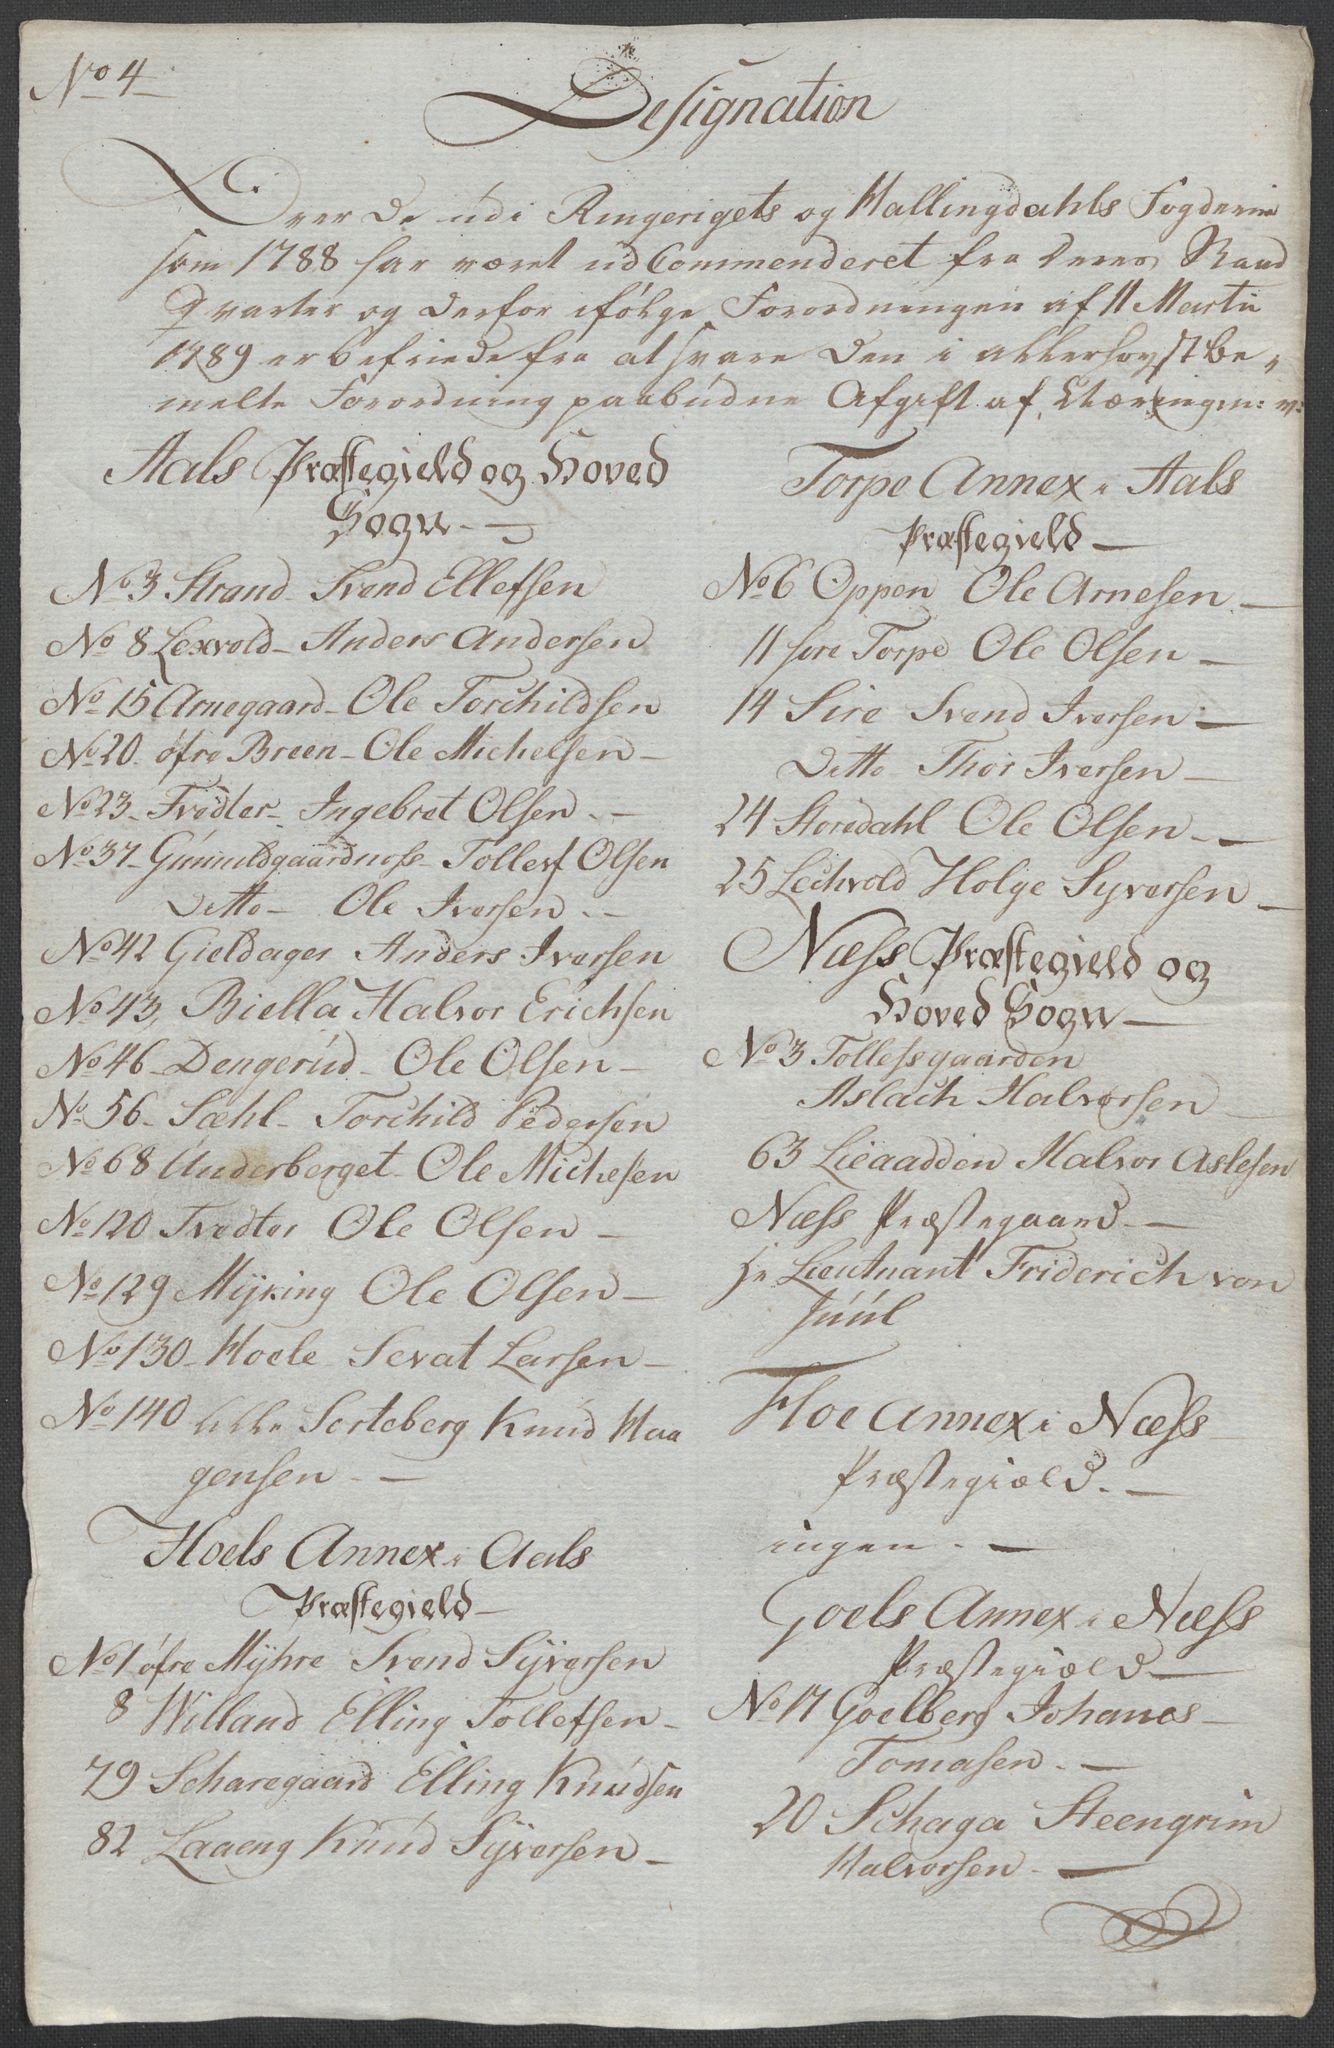 No 4
Designation
Over De udi Ringerigets og Hallingdahls Fogderie
som 1788 har været ud Commenderet fra deres Stand
Qvarter og derfor ifølge Forordningen af 11 Martii
1789 er befriede fra at svare Den i allerhøystbe-
melte Forordning paabudne Afgift af
Aals Præstegield og Hoved
Sogn
No 3 Strand Svend Ellefsen
No 8 Lexvold Anders Andersen
No 15 Arnegaard Ole Torchildsen
No 20 øfre Breen Ole Michelsen
No 23 Tvedter Ingebret Olsen
No 37 Gunnildgaardnoss Tollef Olsen
Ditto Ole Iversen
No 42 Gieldager Anders Iversen
No 43 Biella Halvor Erichsen
No 46 Dengerud Ole Olsen
No 56 Sæhl Torchild Pedersen
No 68 Underberget Ole Michesen
No 120 Tvedter Ole Olsen
No 129 Myking Ole Olsen
No 130 Hoele Sevat Larsen
No 140 lille Sorteberg Knud Haa
gensen
Hoels Annex i Aals
Præstegield
No 1 øfre Myhre Svend Syversen
8 Villand Elling Tollefsen
79 Scharegaard Elling Knudsen
82 Laaeng Knud Syversen
Torpe Annex i Aals
Præstegield
No 6 Oppen Ole Arnesen
11 søre Torpe Ole Olsen
14 Sire Svend Iversen
Ditto Thor Iversen
24 Storedahl Ole Olsen
25 Lechvold Holge Syversen
Næss Præstegield og
Hoved Sogn
No 3 Tollefsgaarden
Aslach Halvorsen
63 Lieaadden Halvor Aslesen
Næss Præstegaard
Hr Lieutnant Friderich von
Juul
Floe Annex i Næss
Præstegiæld
ingen
Goels Annex i Næss
Præstegiæld
No 17 Goelberg Johanes
Tomasen
20 Schaga Steengrim
Halvorsen